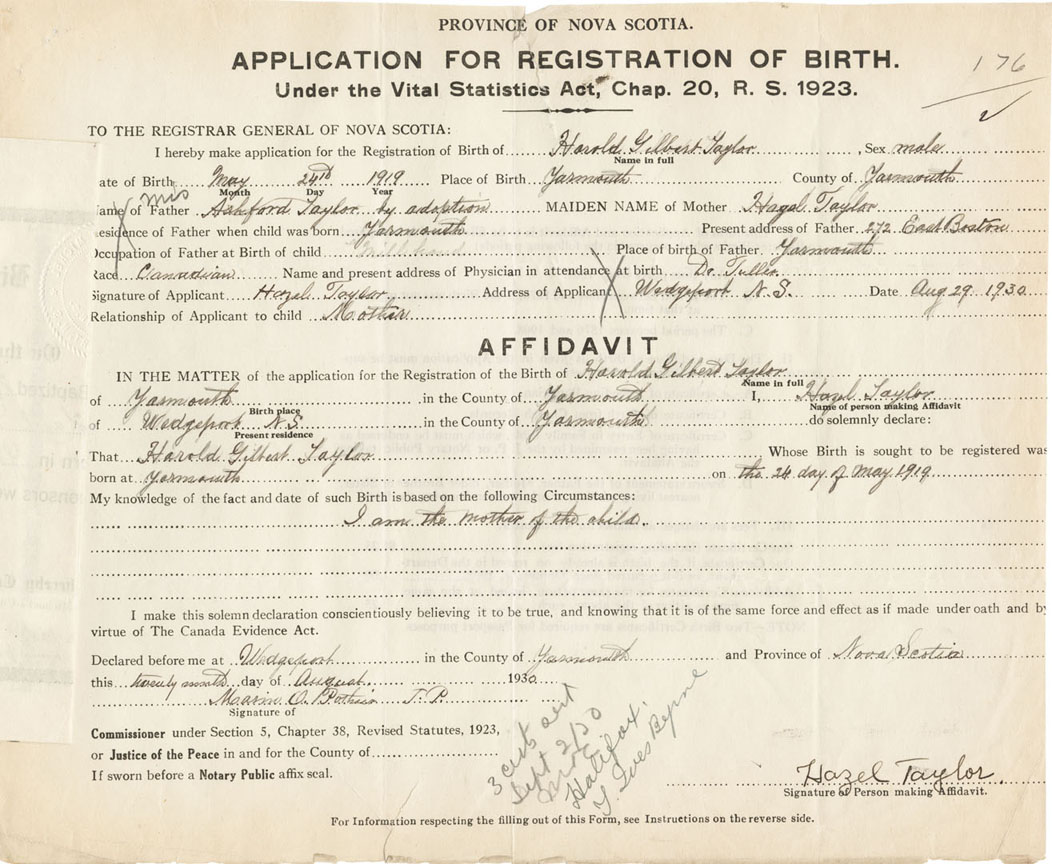 PROVINCE OF NOVA SCOTIA.
APPLICATION FOR REGISTRATION OF BIRTH.
176
Under the Vital Statistics Act, Chap. 20, R. S. 1923.
TO THE REGISTRAR GENERAL OF NOVA SCOTIA:
I hereby make application for the Registration of Birth of Harold Gilbert Taylor, Sex male
Name in full
ate of Birth May 24th 1919 Place of Birth Yarmouth County of Yarmouth
Month Day Year
ame of Father Ashford Taylor by adoption MAIDEN NAME of Mother Hazel Taylor
esidence of Father when child was born Yarmouth Present address of Father 272 East Boston
Occupation of Father at Birth of child Place of birth of Father Yarmouth
Race Canadian Name and present address of Physician in attendance at birth Dr. Fuller
Signature of Applicant Hazel Taylor Address of Applicant Wedgeport N.S. Date Aug 29 1930
Relationship of Applicant to child Mother
AFFIDAVIT
IN THE MATTER of the application for the Registration of the Birth of Harold Gilbert Taylor
Name in full
of Yarmouth in the County of Yarmouth I, Hazel Taylor
Birth place Name of person making Affidavit
of Wedgeport N.S. in the County of Yarmouth do solemnly declare:
Present residence
That Harold Gilbert Taylor Whose Birth is sought to be registered was
born at Yarmouth on the 24 day of May 1919
My knowledge of the fact and date of such Birth is based on the following Circumstances:
I am the mother of the child.
I make this solemn declaration conscientiously believing it to be true, and knowing that it is of the same force and effect as if made under oath and by
virtue of The Canada Evidence Act.
Declared before me at Wedgeport in the County of Yarmouth and Province of Nova Scotia
this twenty ninth day of August 1930
O. Pothier J. P.
Signature of
Commissioner under Section 5, Chapter 38, Revised Statutes, 1923,
or Justice of the Peace in and for the County of
If sworn before a Notary Public affix seal.
3 cert sent
Sept 2/30
Halifax.
Hazel Taylor.
Signature of Person making Affidavit.
For Information respecting the filling out of this Form, see Instructions on the reverse side.